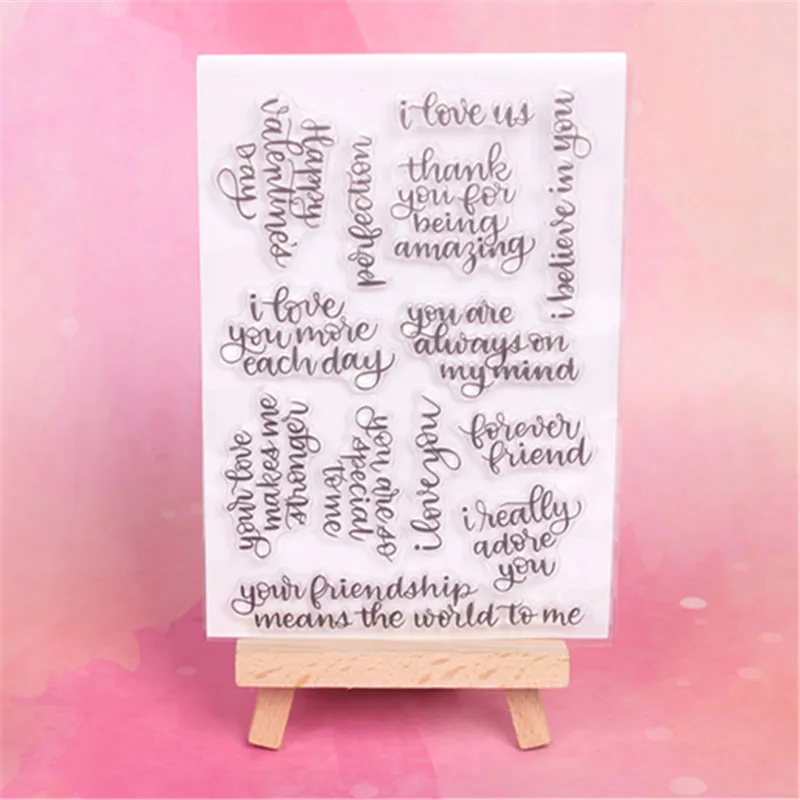 Happy
valentine's
day
perfection
i love us
thank
you for
being
amazing
i believe in you
i love
you more
each day
you are
always on
my mind
your love
makes me
stronger
you are so
special
to me
i love you
forever
friend
i really
adore
you
your friendship
means the world to me